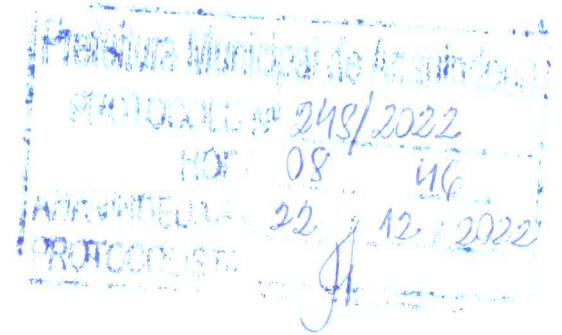 Prefeitura Municipal de
PROTOCOLO Nº 248/2022
HORA 08 46
22 / 12 / 2022
PROTOCOLISTA